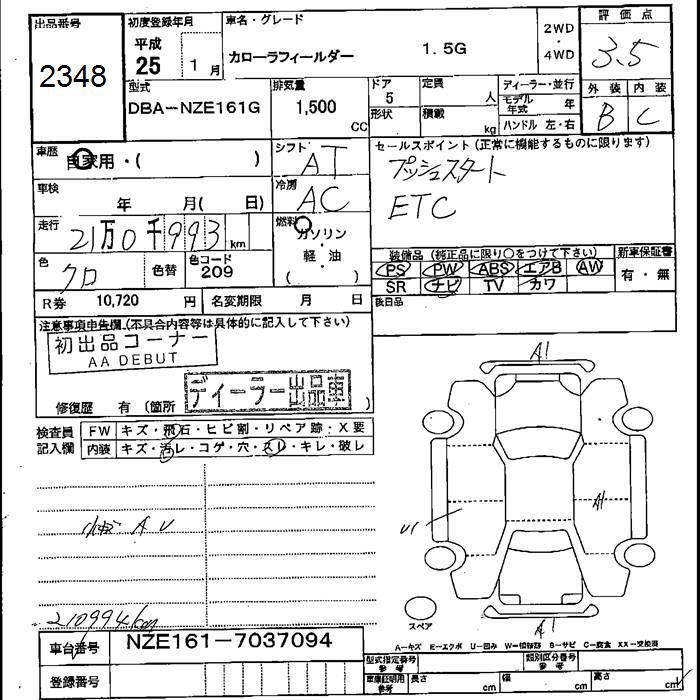 出品番号 初度登録年月 車名・グレード 2WD 評価点
2348 平成 25 1月 カローラフィールダー 1.5G ・ 4WD 3.5
型式 排気量 ドア 定員 ディーラー・並行 外装 内装
DBA-NZE161G 1,500 CC 5 人 モデル年式 年 B C
形状 積載 kg ハンドル 左・右
車歴 自家用・( ) シフト AT セールスポイント(正常に機能するものに限ります)
車検 年 月( 日) 冷房 AC プッシュスタート
ETC
走行 21万0千993km 燃料 ガソリン・軽・油 ( )
色 クロ 色替 色コード 209
装備品(純正品に限り○をつけて下さい) 新車保証書
PS PW ABS エアB AW 有・無
SR ナビ TV カワ
R券 10,720 円 名変期限 月 日 後日品
注意事項申告欄(不具合内容等は具体的に記入して下さい)
初出品コーナー
AA DEBUT
ディーラー出品車
修復歴 有 (箇所 )
検査員記入欄 FW キズ・飛石・ヒビ割・リペア跡・X要
内装 キズ・汚レ・コゲ・穴・スレ・キレ・破レ
A1
A1
U1
小キズ A U
210994km
スペア
A1
車台番号 NZE161-7037094
A-キズ E-エクボ U-凹み W-補修跡 B-サビ C-腐食 XX-交換済
型式指定番号 参考 類別区分番号 参考
登録番号 車庫証明用 参考 長さ cm 幅 cm 高さ cm